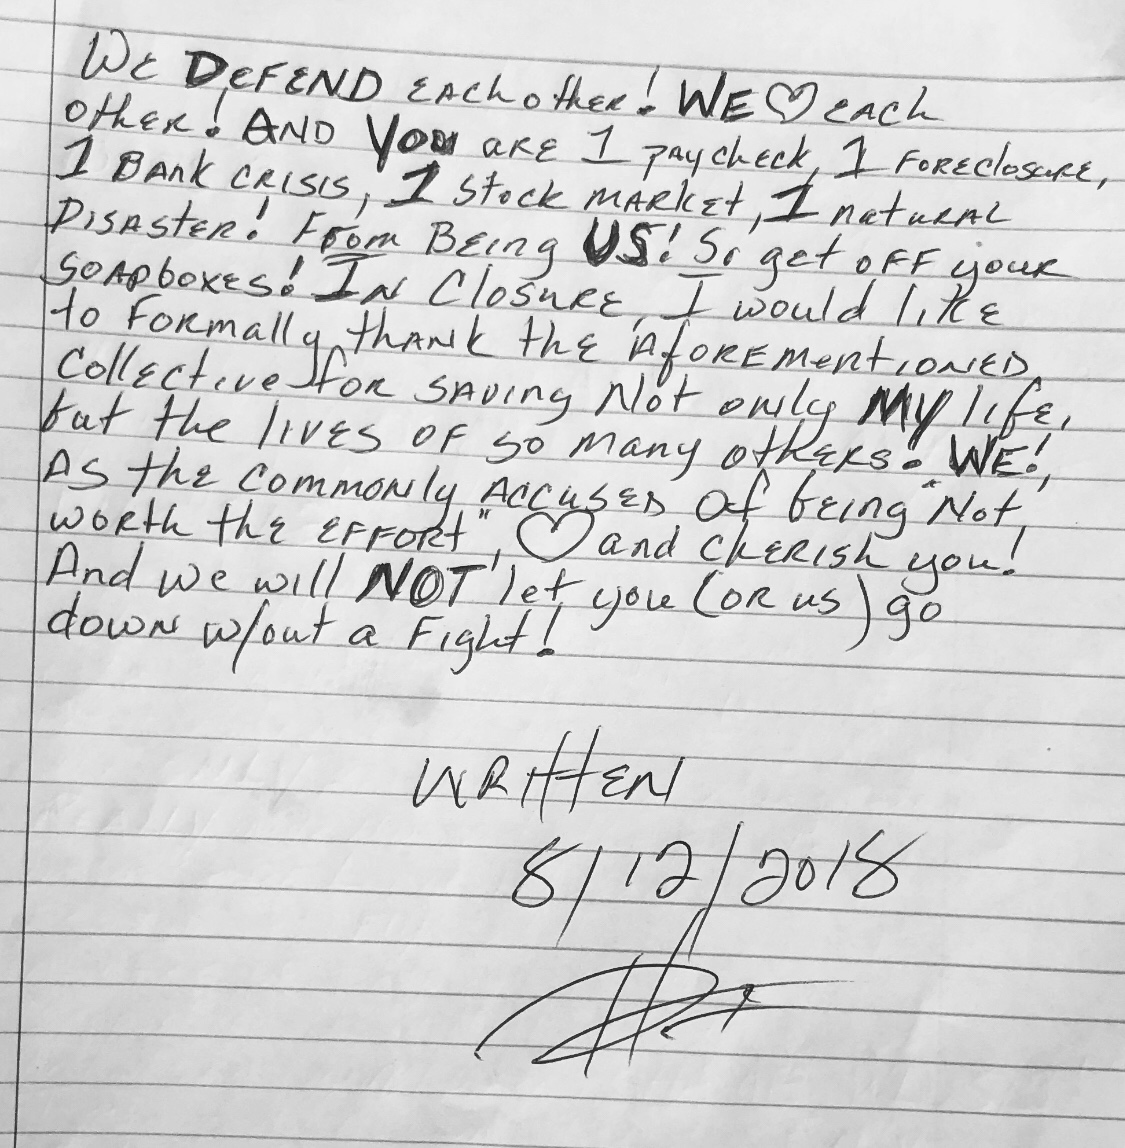 We DEFEND each other! WE ♡ each
other! AND YOU are 1 paycheck, 1 foreclosure,
1 Bank crisis, 1 stock market, 1 natural
Disaster! From Being US! So get off your
soapboxes! In Closure, I would like
to formally thank the Aforementioned
Collective for saving Not only MY life,
but the lives of so many others! WE!,
As the commonly Accused of being "Not
worth the effort", ♡ and cherish you!
And we will NOT let you (or us) go
down w/out a Fight!
WRITTEN
8/12/2018